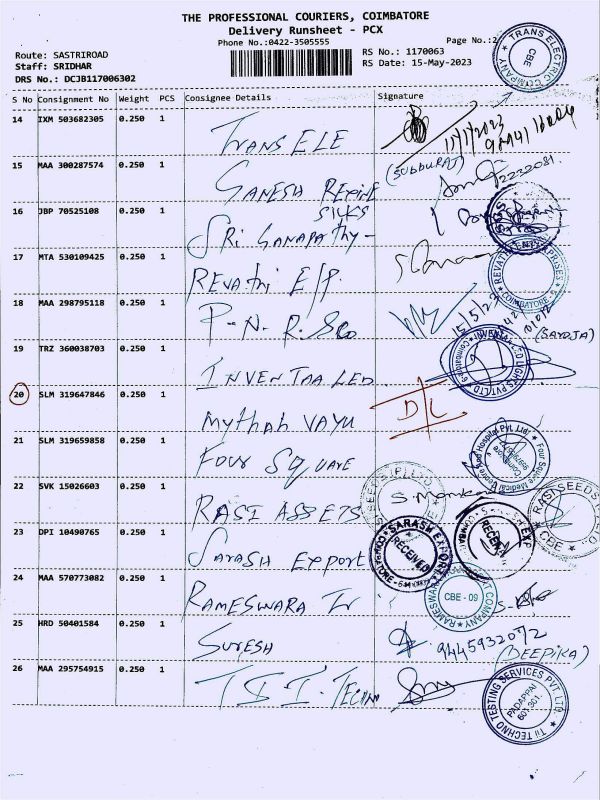 THE PROFESSIONAL COURIERS, COIMBATORE
Delivery Runsheet - PCX
Phone No.:0422-3505555
Page No.:2
Route: SASTRIROAD
Staff: SRIDHAR
DRS No.: DCJB117006302
RS No.: 1170063
RS Date: 15-May-2023
TRANS ELECTRIC COMPANY CBE
S No Consignment No Weight PCS Consignee Details Signature
14 IXM 503682305 0.250 1 TRANS ELE
(SUBBURAJ)
15 MAA 300287574 0.250 1 GANESH REXINE
16 JBP 70525108 0.250 1 SRI GANAPATHY - SILKS
17 MTA 530109425 0.250 1 REVATHI E/P.
COIMBATORE
18 MAA 298795118 0.250 1 P.N.R. Sco
(SAROJA)
19 TRZ 360038703 0.250 1 INVENTAA LED
20 SLM 319647846 0.250 1 Mythah VAYU D/L
21 SLM 319659858 0.250 1 FOUR SQUARE
22 SVK 15026603 0.250 1 RASI ASSETS
RASI SEEDS CBE
23 DPI 10490765 0.250 1 SARASH EXPORT
RECEIVED
24 MAA 570773082 0.250 1 RAMESWARA
CBE - 09
25 HRD 50401584 0.250 1 SURESH 9445932072
(DEEPIKA)
26 MAA 295754915 0.250 1 T.I.I. Techno
TII TECHNO TESTING SERVICES PVT LTD. PADAPPAI 601 301.